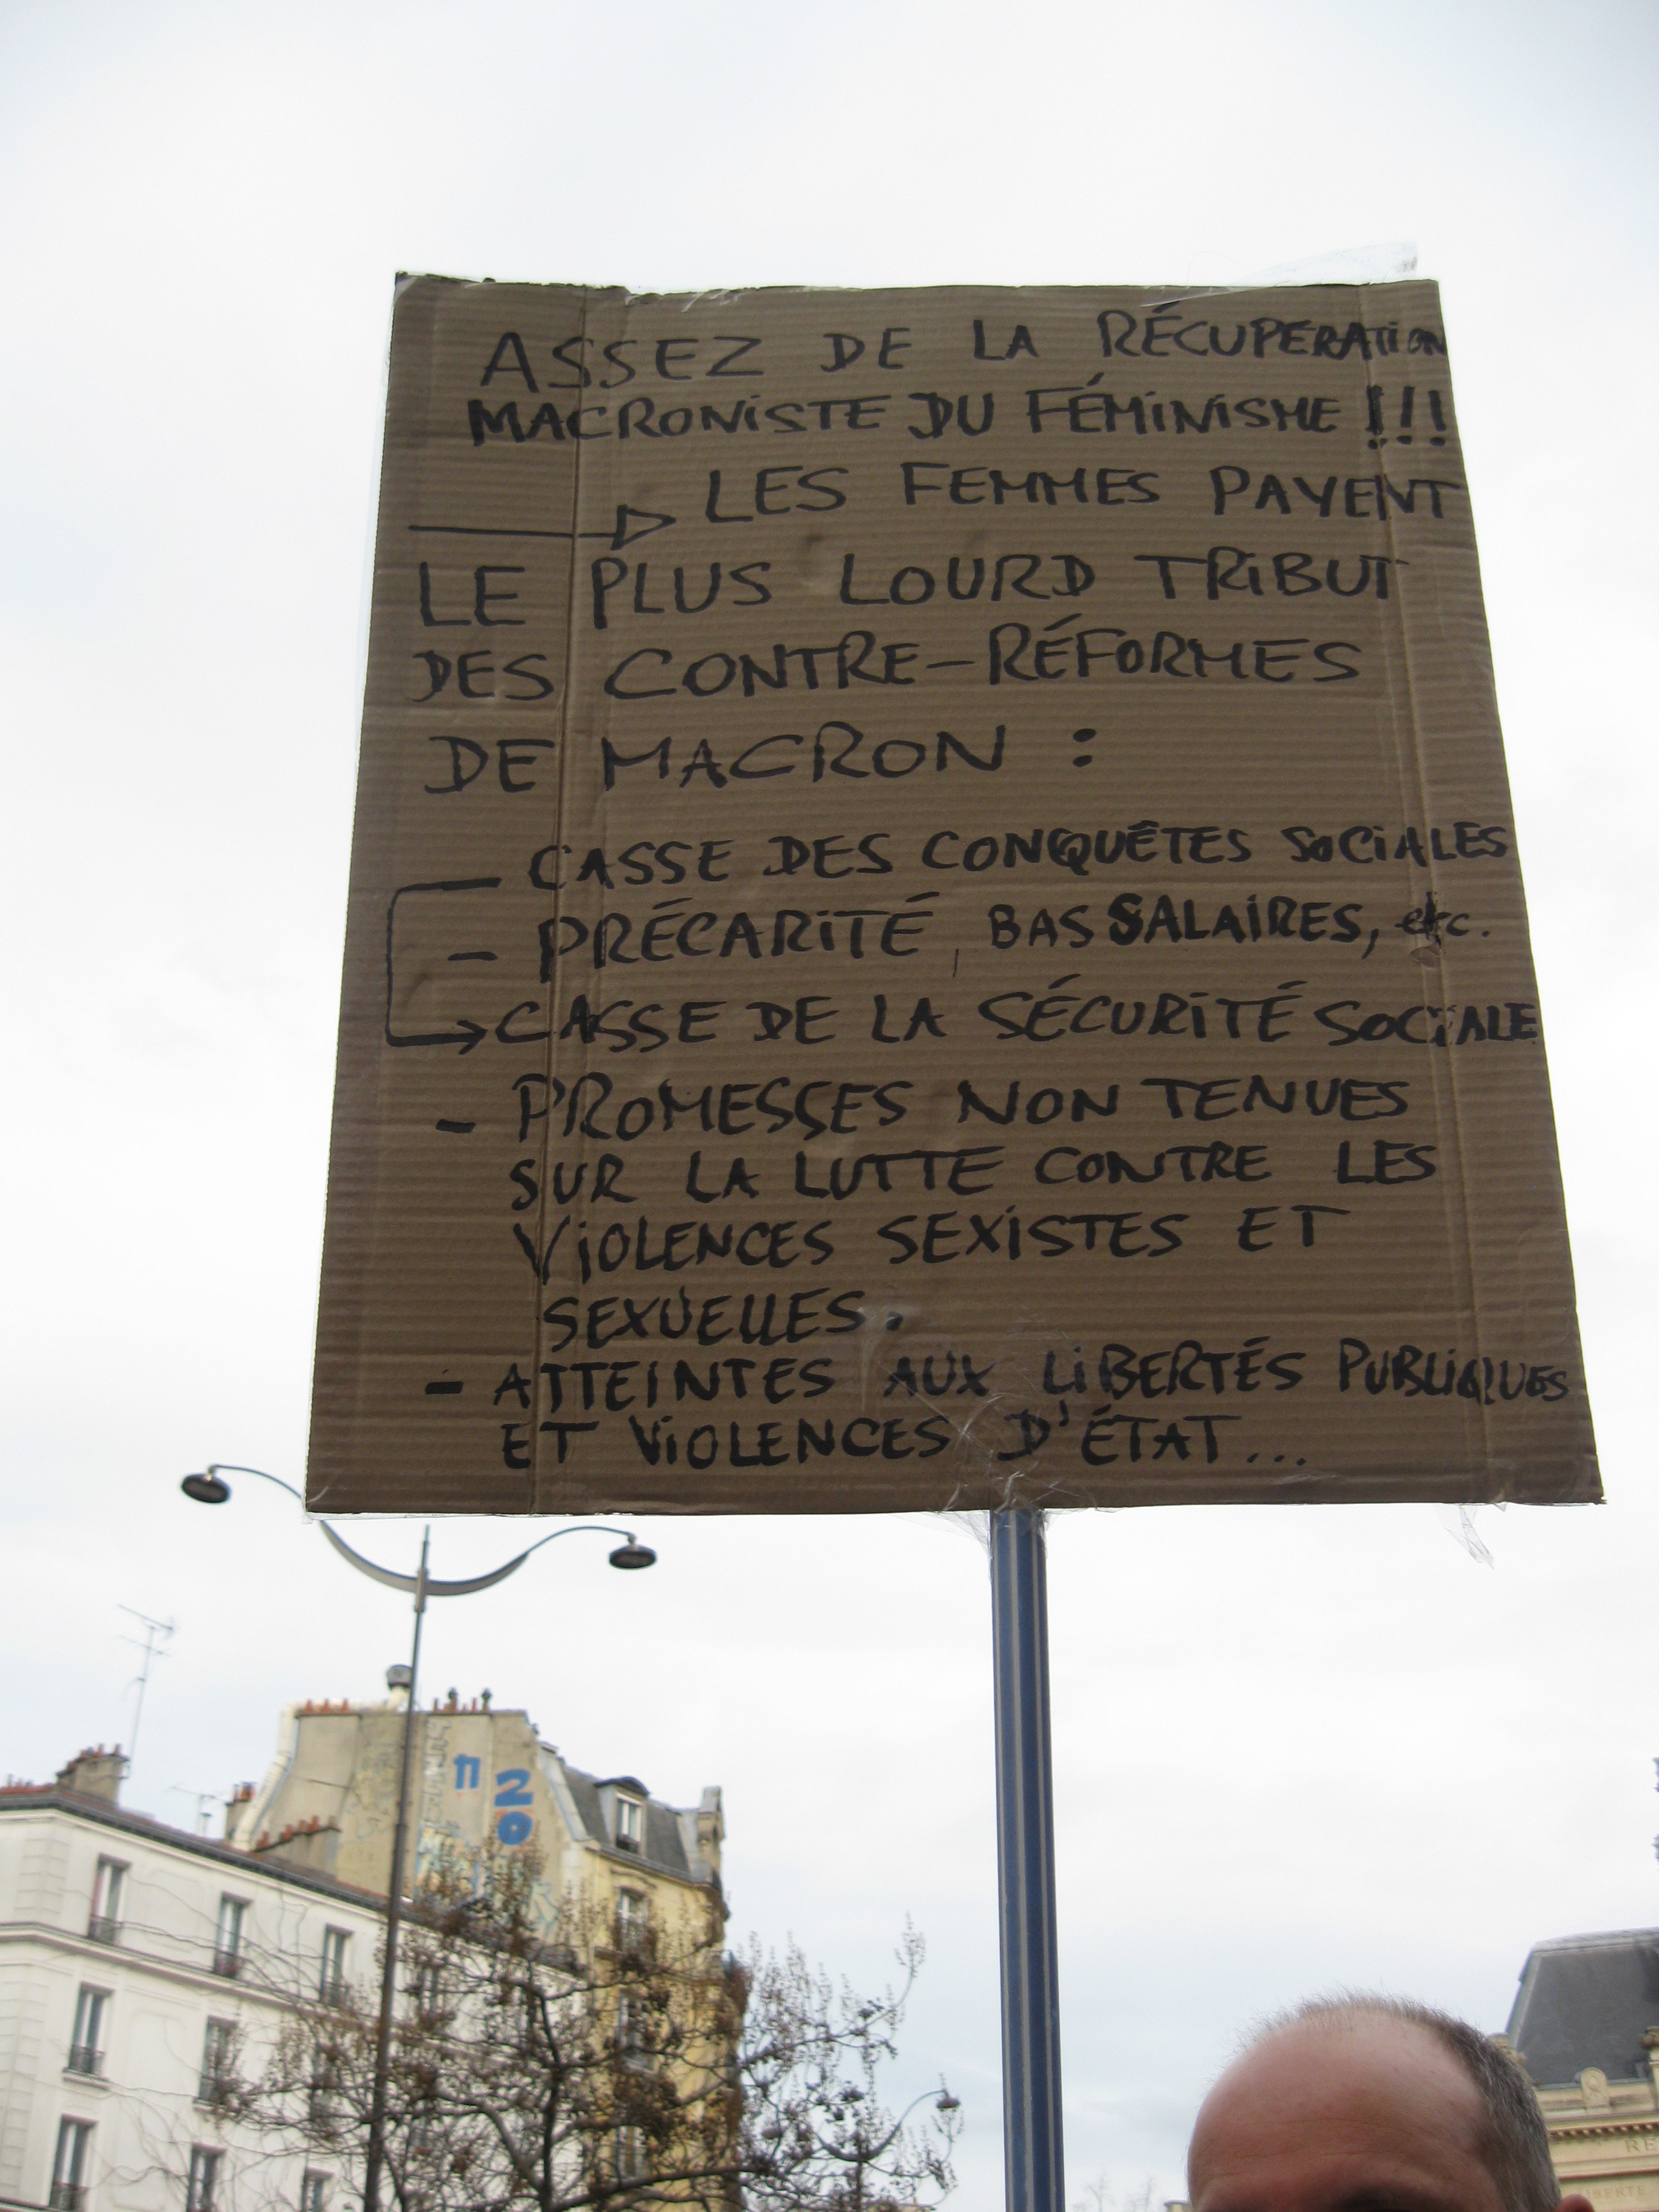 ASSEZ DE LA RÉCUPERATION
MACRONISTE DU FÉMINISME !!!
LES FEMMES PAYENT
LE PLUS LOURD TRIBUT
DES CONTRE-RÉFORMES
DE MACRON :
CASSE DES CONQUÊTES SOCIALES
- PRÉCARITÉ, BAS SALAIRES, etc.
CASSE DE LA SÉCURITÉ SOCIALE
- PROMESSES NON TENUES
SUR LA LUTTE CONTRE LES
VIOLENCES SEXISTES ET
SEXUELLES.
- ATTEINTES AUX LIBERTÉS PUBLIQUES
ET VIOLENCES D'ÉTAT...
20